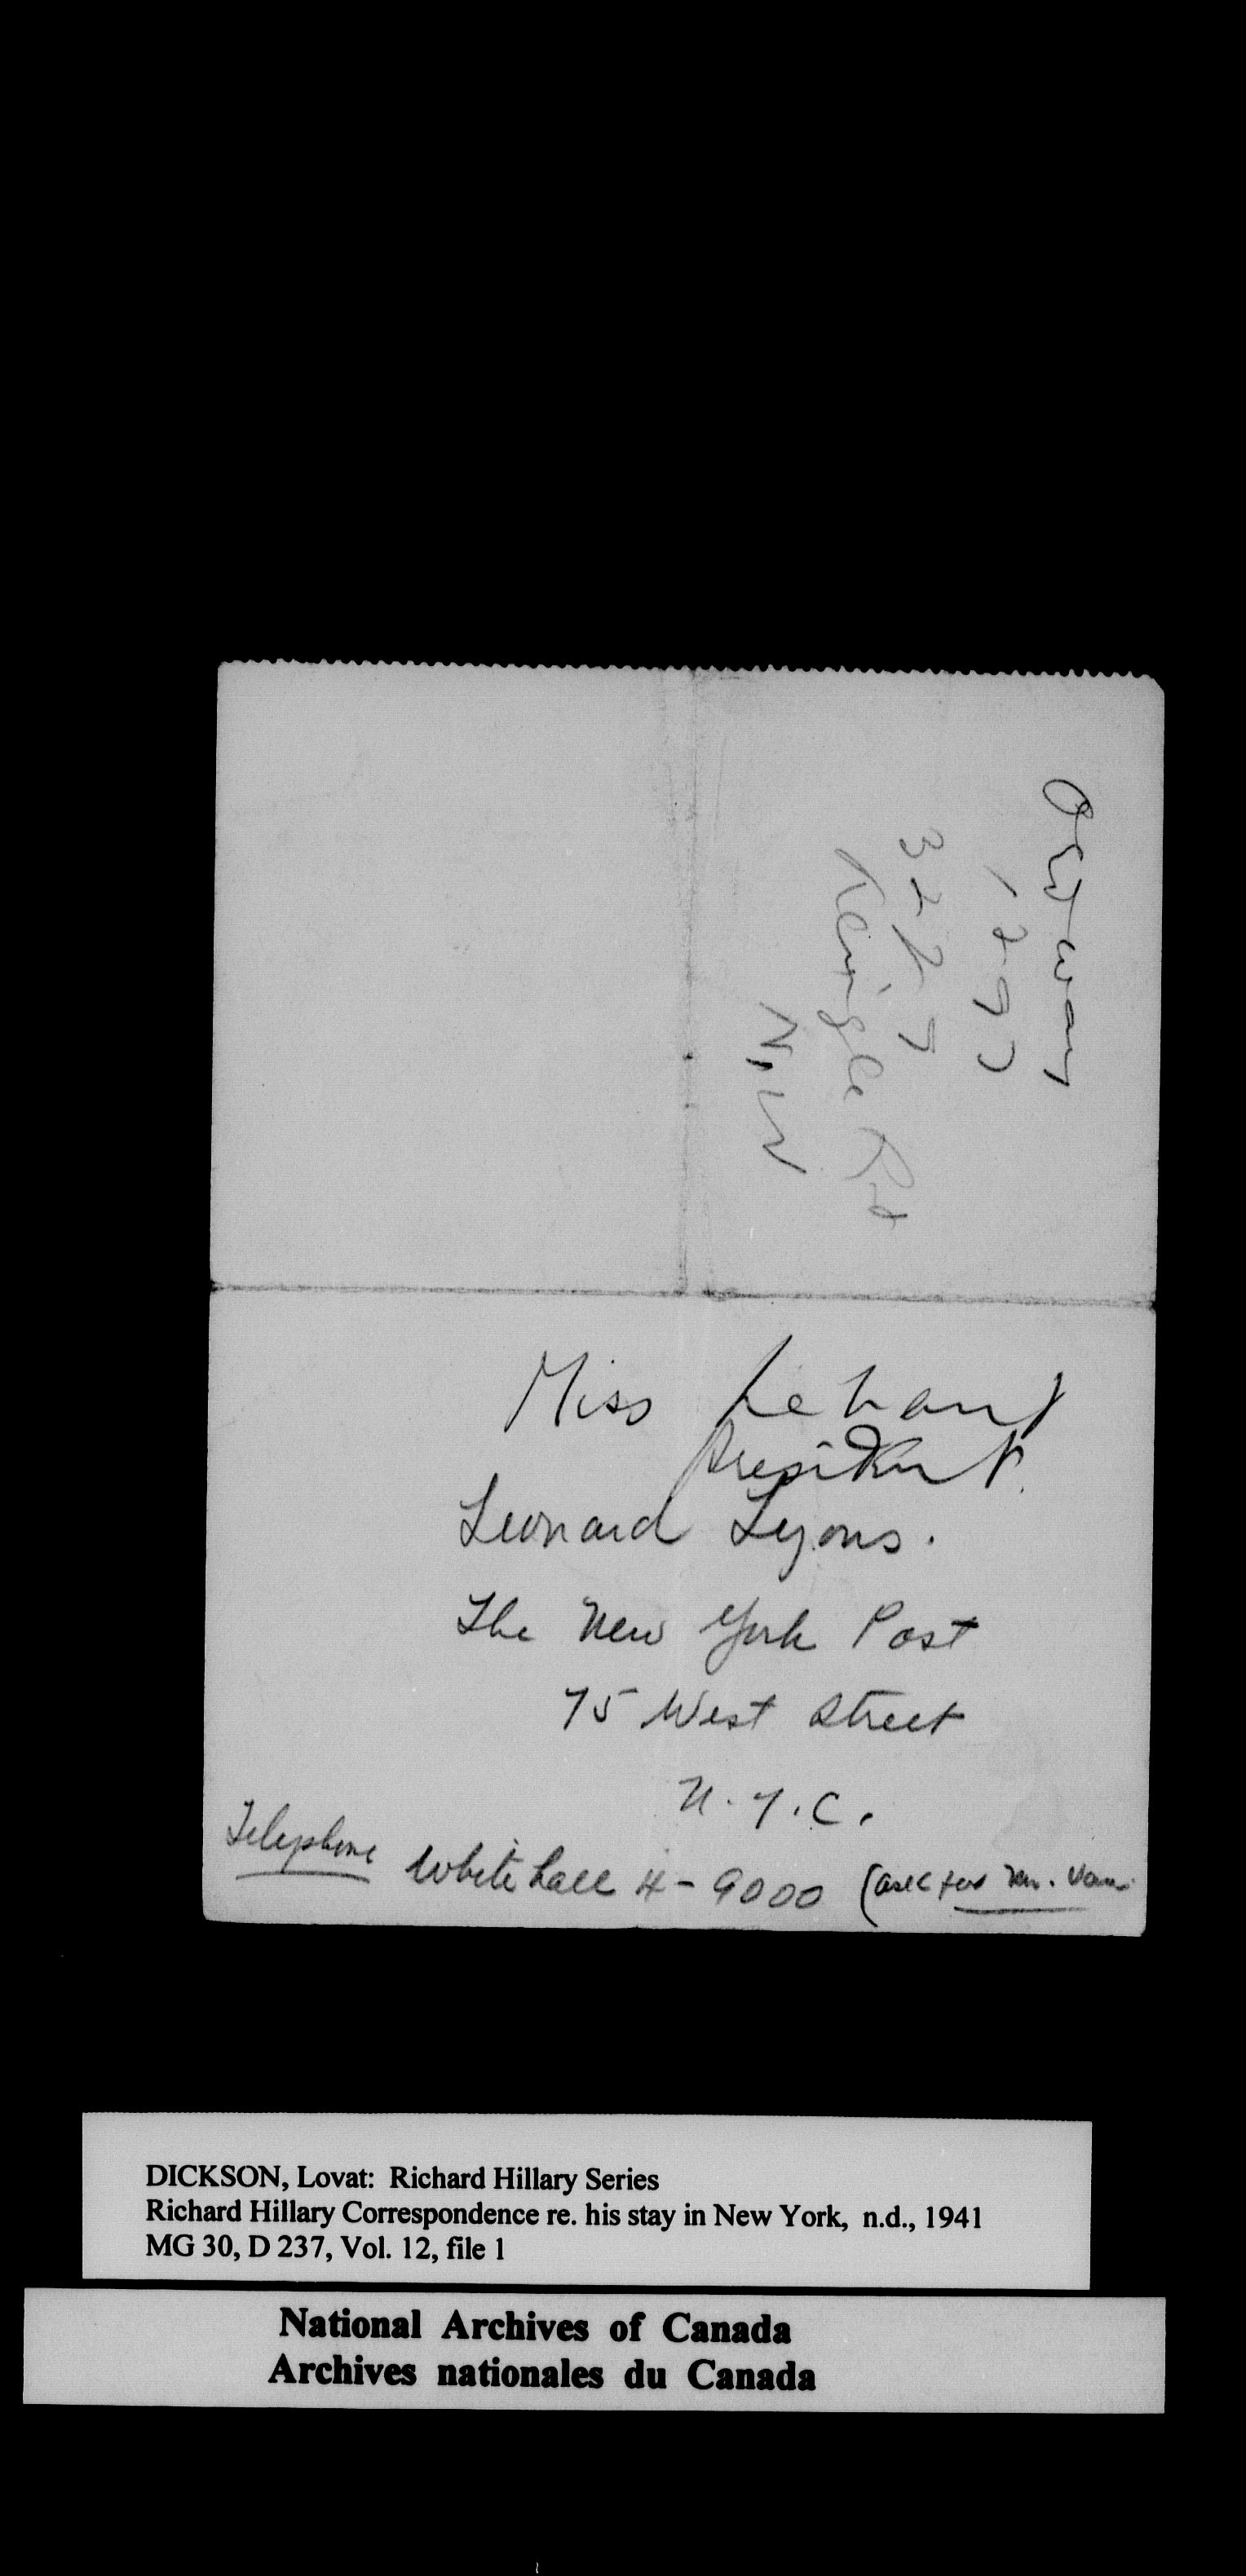 Ordway
1297
Klingle Rd
N.W
Miss Lehand
President
Leonard Lyons.
The New York Post
75 West Street
N.Y.C.
Telephone Whitehall 4-9000 (ask for
DICKSON, Lovat: Richard Hillary Series
Richard Hillary Correspondence re. his stay in New York, n.d., 1941
MG 30, D 237, Vol. 12, file 1
National Archives of Canada
Archives nationales du Canada